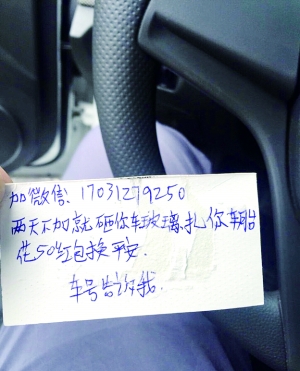 加微信: 17031279250
两天不加就砸你车玻璃.扎你车胎
花50红包换平安.
车号告诉我.